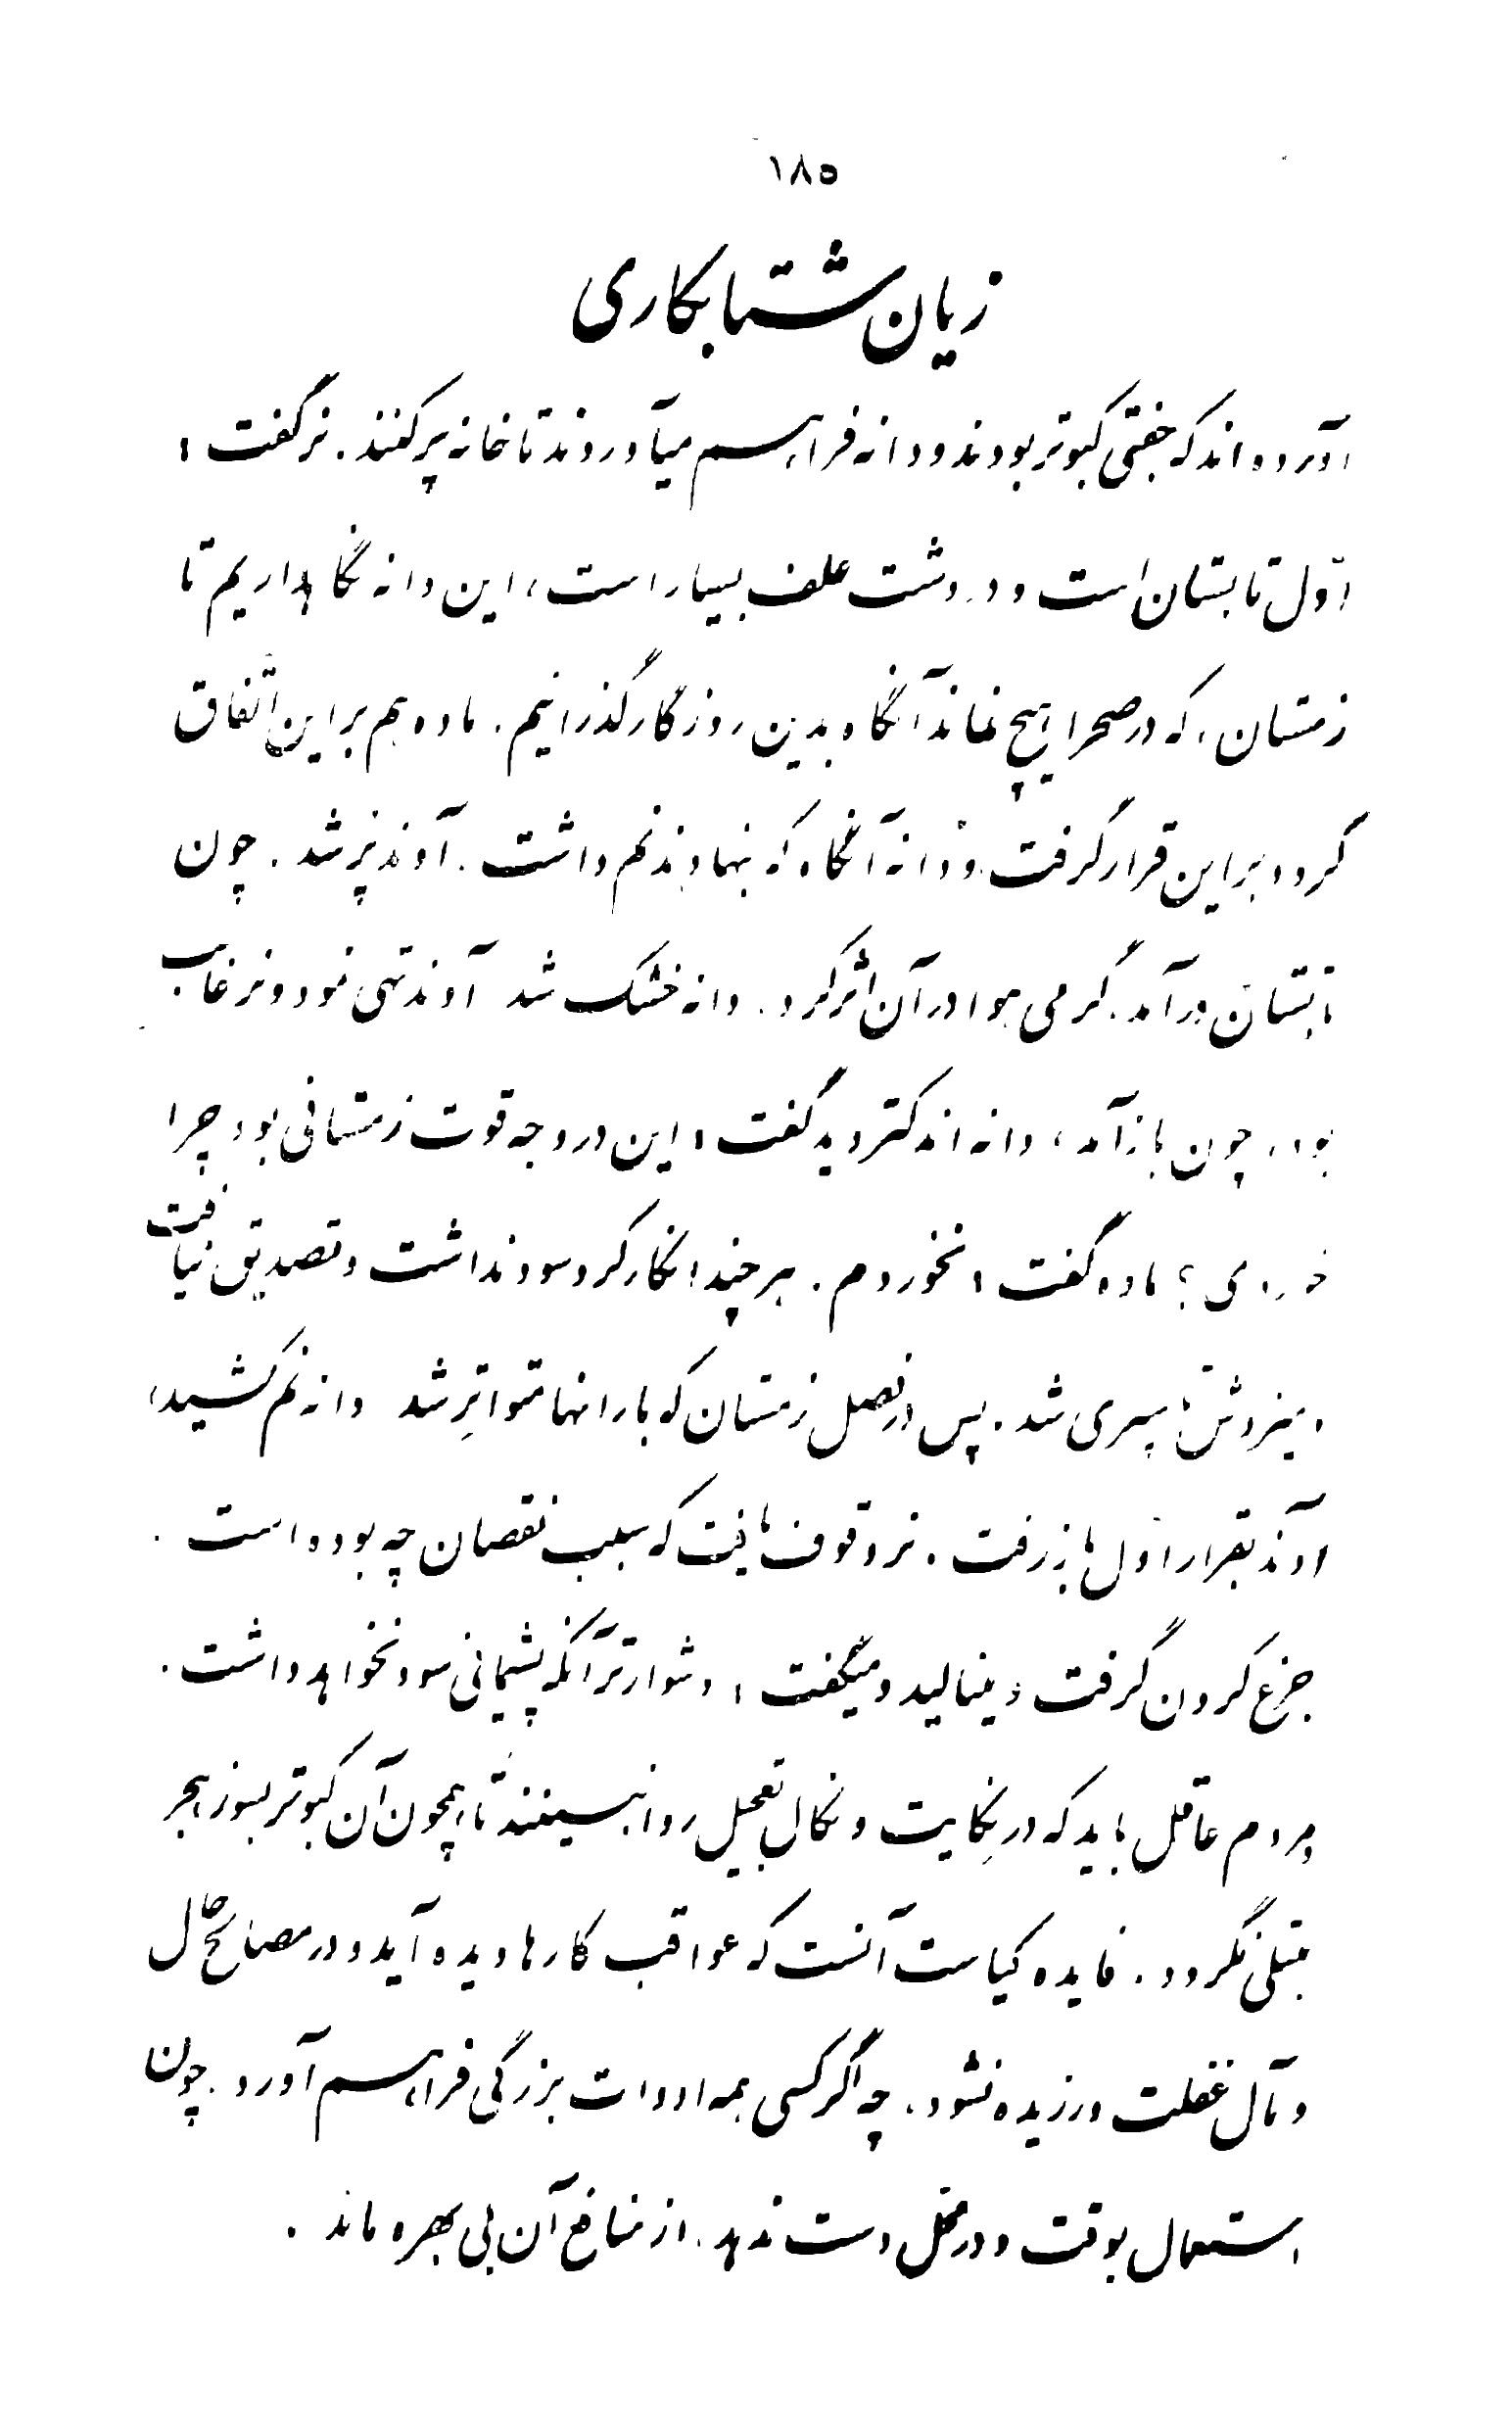 ۱۸۵
زیان شتابکاری
آورده اند که جفتی کبوتر بودند و دانه فراهم میآوردند تا خانه پر کنند. نر گفت :
اوّل تابستان است و در دشت علف بسیار است، این دانه نگاهداریم تا
زمستان، که در صحرا هیچ نماند آنگاه بدین روزگار گذرانیم. ماده هم بر این اتّفاق
کرد و بر این قرار گرفت. و دانه آنگاه که بنهادند نم داشت. آوند پر شد. چون
تابستان درآمد. گرمی هوا در آن اثر کرد. دانه خشک شد آوند تهی نمود و نر غایب
بود، چون بازآمد، دانه اندکتر دید گفت : این در وجه قوت زمستانی بود چرا
خوردی؟ ماده گفت : نخوردم. هر چند انکار کرد سود نداشت و تصدیق نیافت
و میزدش تا سپری شد. پس در فصل زمستان که بارانها متواترِ شد دانه نم کشید،
آوند بقرار اوّل باز رفت. نر وقوف یافت که سبب نقصان چه بوده است .
جزع کردن گرفت و مینالید و میگفت : دشوارتر آنکه پشیمانی سود نخواهد داشت.
و مردم عاقل باید که در نِکایت و نکال تعجیل روا نبینند تا همچون آن کبوتر بسوز هجر
مبتلی نگردد. فایده کیاست آنست که عواقب کارها دیده آید و در مصالح حال
و مآل غفلت ورزیده نشود. چه اگر کسی همه ادوات بزرگی فراهم آورد. چون
استعمال بوقت و در محل دست ندهد. از منافع آن بی بهره ماند .